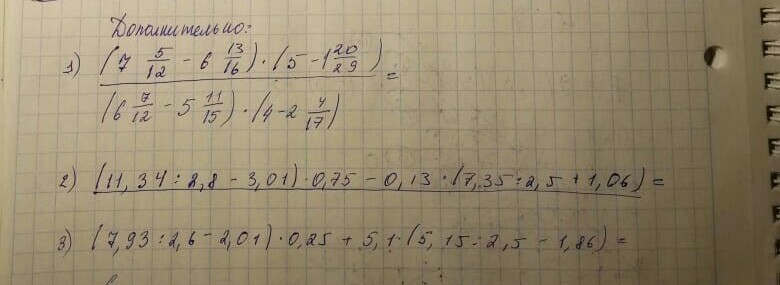 Дополнительно:
1) (7 5/12 - 6 13/16) · (5 - 1 20/29) =
(6 7/12 - 5 11/15) · (4 - 2 4/17)
2) (11,34 : 2,8 - 3,01) · 0,75 - 0,13 · (7,35 : 2,5 + 1,06) =
3) (7,93 : 2,6 - 2,01) · 0,25 + 5,1 · (5,15 : 2,5 - 1,86) =